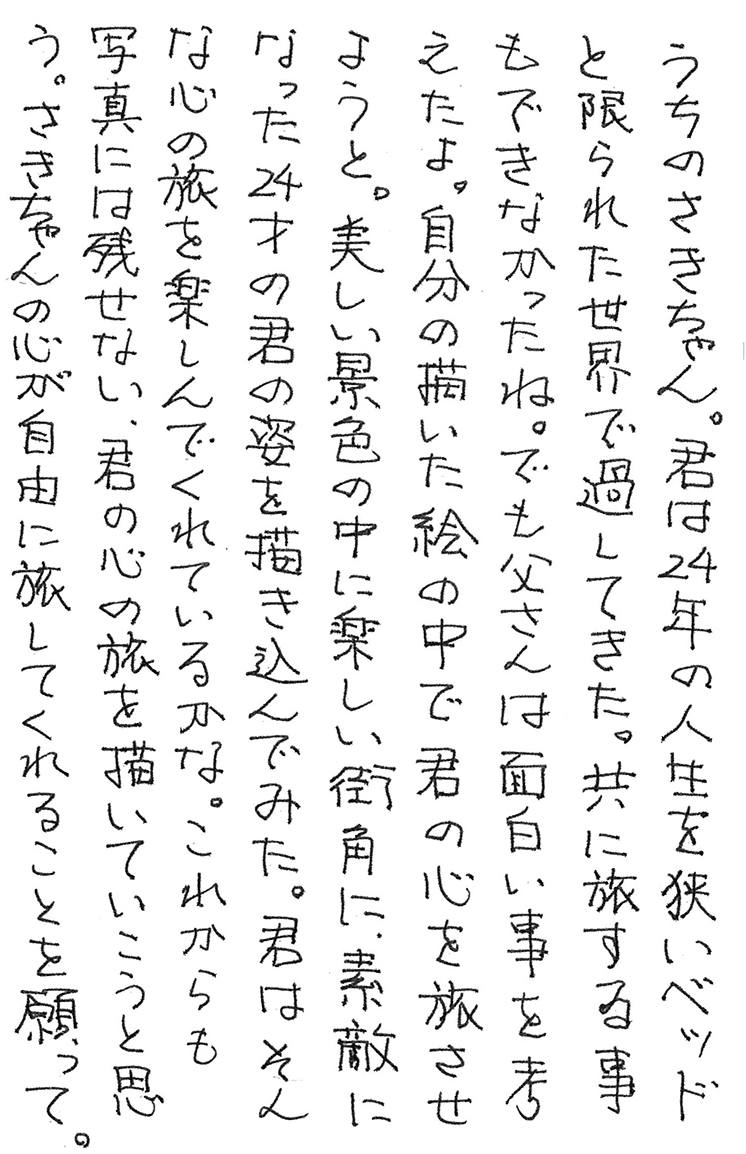 うちのさきちゃん。君は24年の人生を狭いベッド
と限られた世界で過してきた。共に旅する事
もできなかったね。でも父さんは面白い事を考
えたよ。自分の描いた絵の中で君の心を旅させ
ようと。美しい景色の中に楽しい街角に、素敵に
なった24才の君の姿を描き込んでみた。君はそん
な心の旅を楽しんでくれているかな。これからも
写真には残せない、君の心の旅を描いていこうと思
う。さきちゃんの心が自由に旅してくれることを願って。